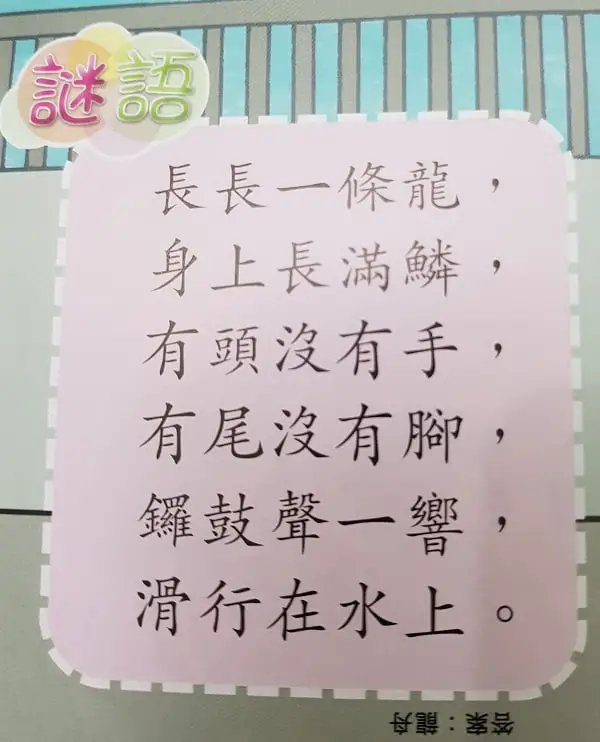 謎語
長長一條龍，
身上長滿鱗，
有頭沒有手，
有尾沒有腳，
鑼鼓聲一響，
滑行在水上。
答案：龍舟